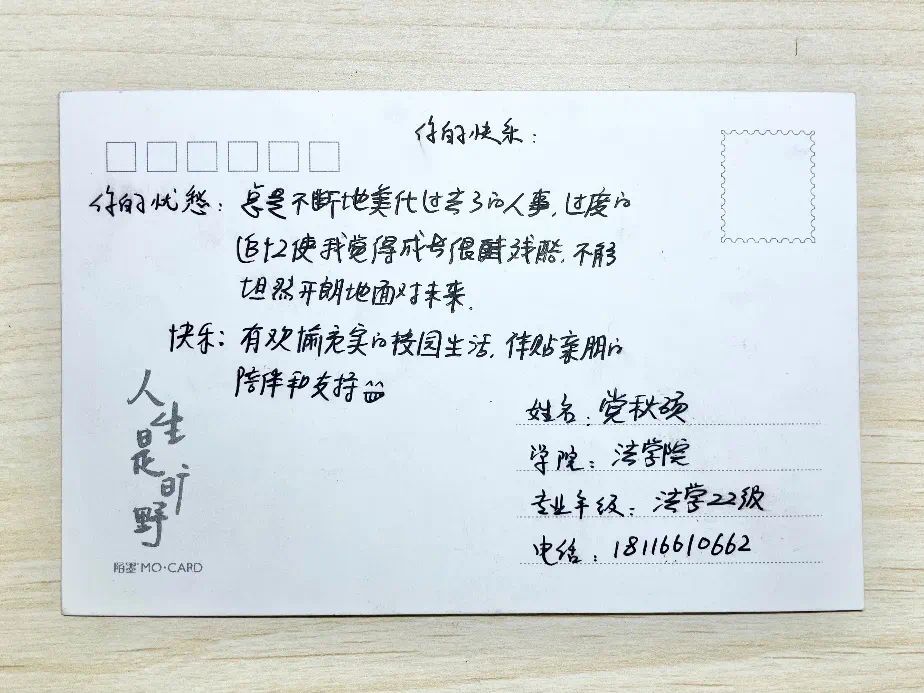 你的快乐：
你的忧愁：总是不断地美化过去了的人事，过度的
追忆使我觉得成长很残酷，不能
坦然开朗地面对未来.
快乐：有欢愉充实的校园生活，体贴亲朋的
陪伴和支持
人生是旷野
姓名：党秋硕
学院：法学院
专业年级：法学22级
电话：18116610662
陌墨 MO·CARD